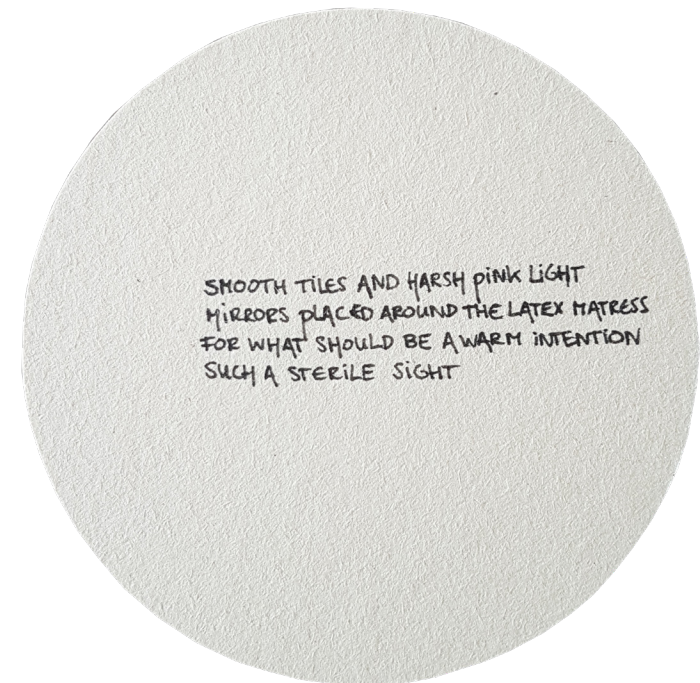 SMOOTH TiLES AND HARSH piNK LiGHT
MiRRORS pLACED AROUND THE LATEX MATRESS
FOR WHAT SHOULD BE A WARM iNTENTiON
SUCH A STERiLE SiGHT